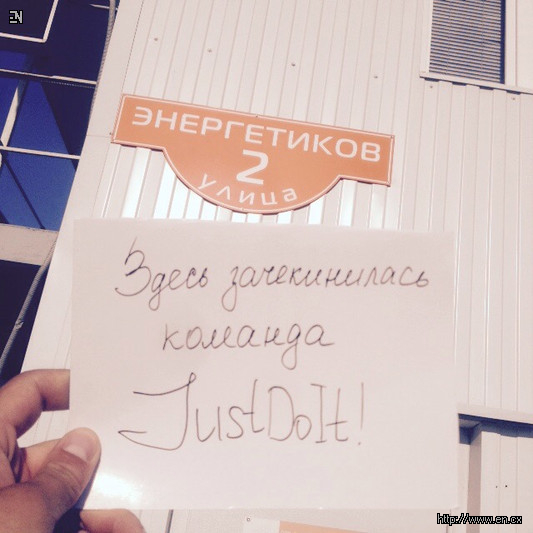 EN
ЭНЕРГЕТИКОВ
2
улица
Здесь зачекинилась
команда
JustDoIt!
http://www.en.cx